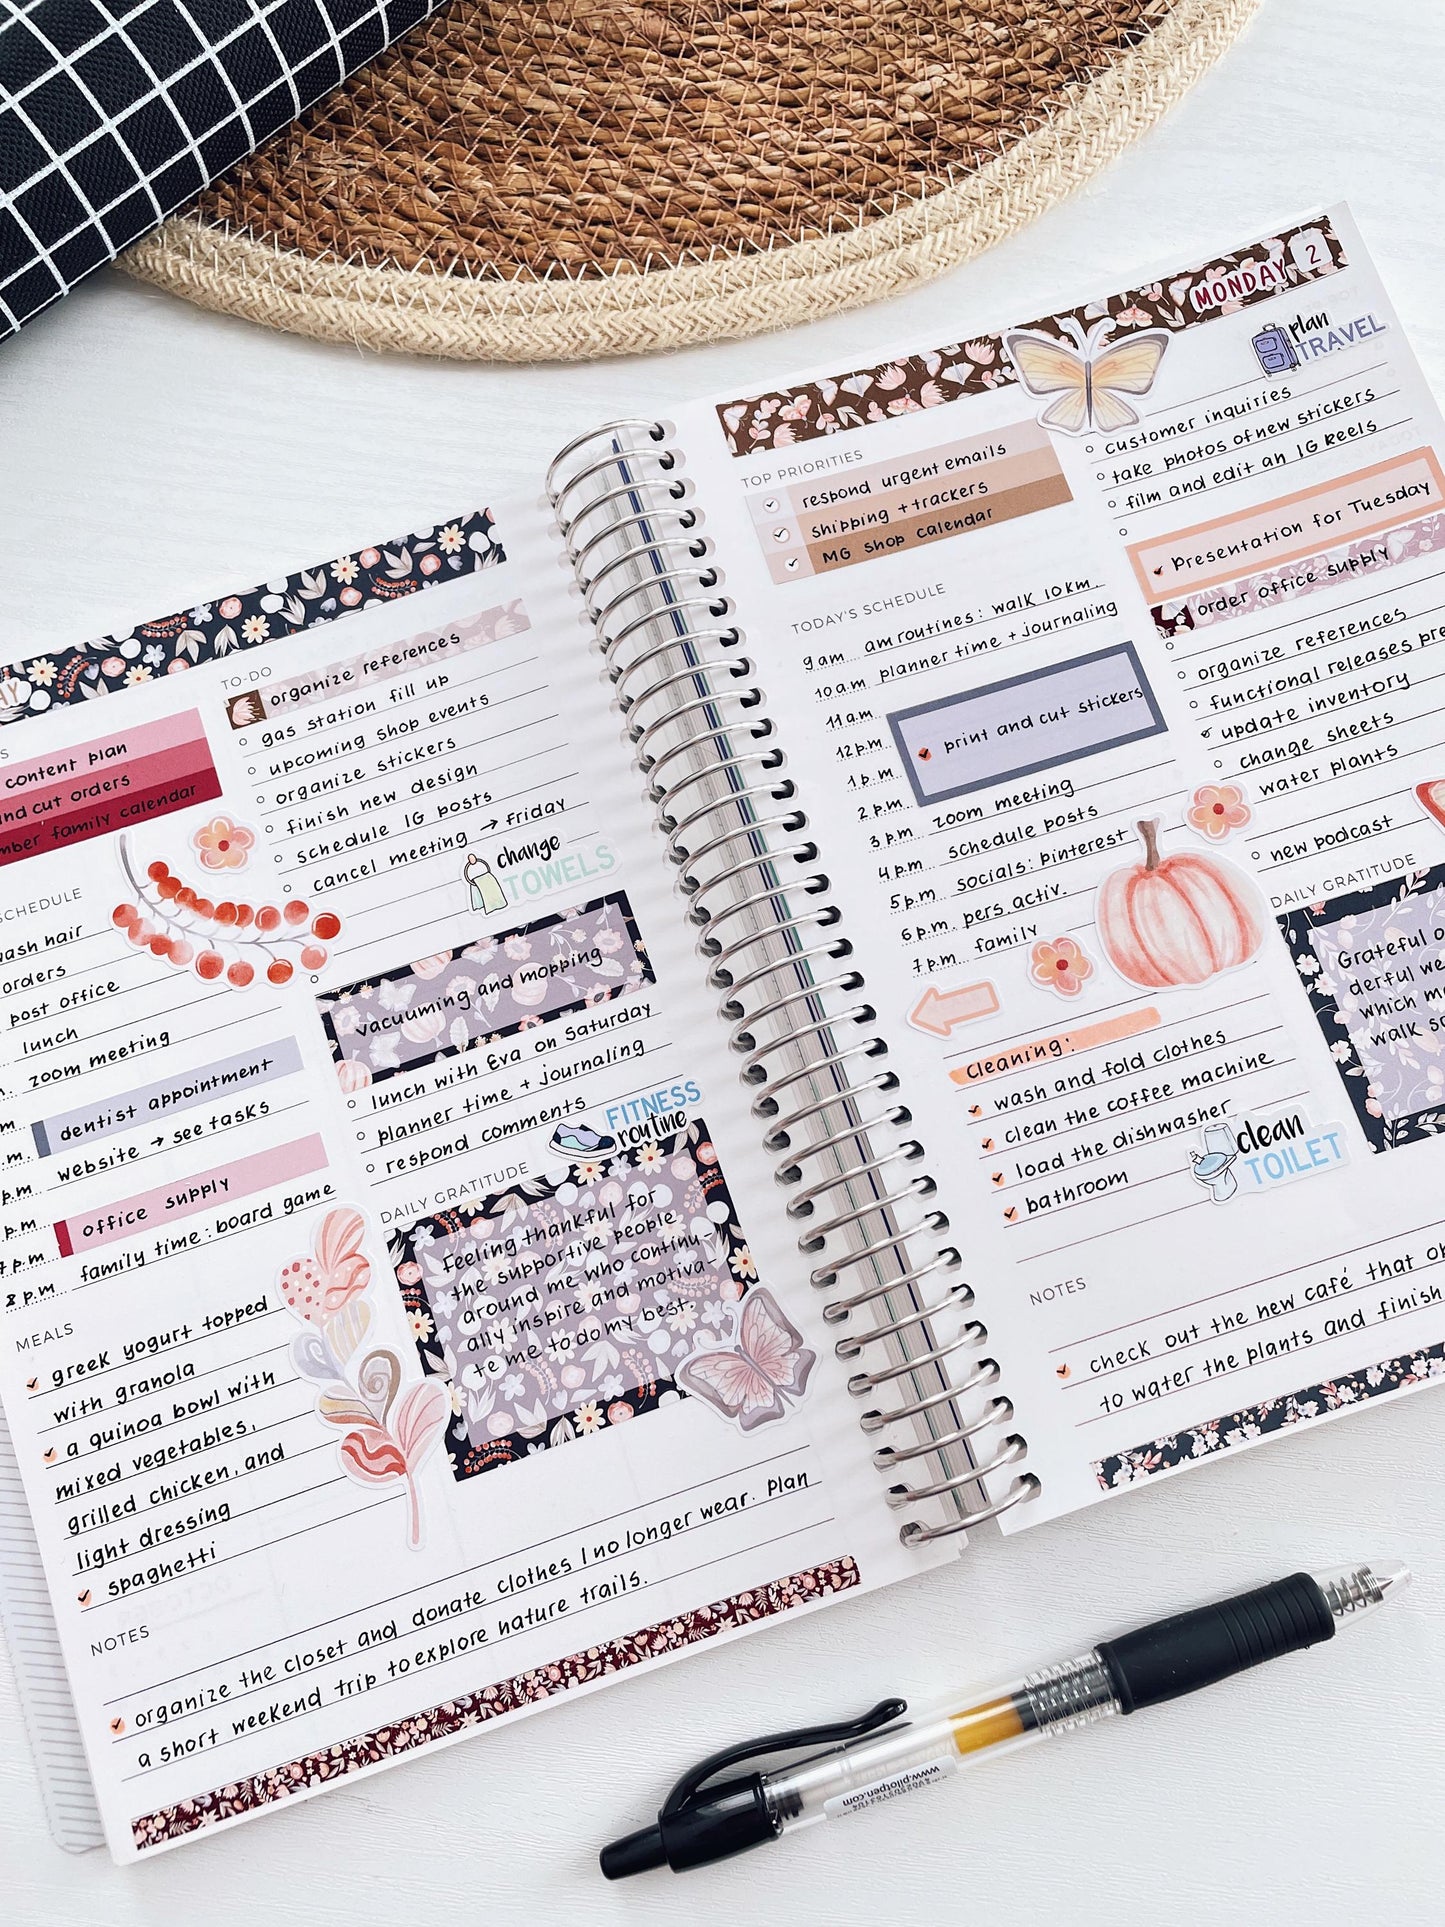 TO-DO
organize references
gas station fill up
upcoming shop events
organize stickers
finish new design
schedule IG posts
cancel meeting → friday
change
TOWELS
content plan
and cut orders
family calendar
SCHEDULE
hair
orders
post office
lunch
zoom meeting
dentist appointment
website → see tasks
office supply
family time: board game
8 p.m.
vacuuming and mopping
lunch with Eva on Saturday
planner time + journaling
respond comments
FITNESS
routine
DAILY GRATITUDE
Feeling thankful for
the supportive people
around me who continu-
ally inspire and motiva-
te me to do my best.
MEALS
greek yogurt topped
with granola
a quinoa bowl with
mixed vegetables,
grilled chicken, and
light dressing
spaghetti
NOTES
organize the closet and donate clothes I no longer wear. Plan
a short weekend trip to explore nature trails.
MONDAY 2
plan
TRAVEL
TOP PRIORITIES
respond urgent emails
shipping + trackers
MG shop calendar
TODAY'S SCHEDULE
9 am am routines: walk 10km.
10 a.m planner time + journaling
11 a.m
12 p.m print and cut stickers
1 p.m
2 p.m
3 p.m zoom meeting
4 p.m schedule posts
5 p.m socials: pinterest
6 p.m pers. activ.
7 p.m family
customer inquiries
take photos of new stickers
film and edit an IG Reels
Presentation for Tuesday
order office supply
organize references
functional releases
update inventory
change sheets
water plants
new podcast
Cleaning:
wash and fold clothes
clean the coffee machine
load the dishwasher
bathroom
clean
TOILET
DAILY GRATITUDE
Grateful
derful
which
walk
NOTES
check out the new café that
to water the plants and finish
www.pilotpen.com